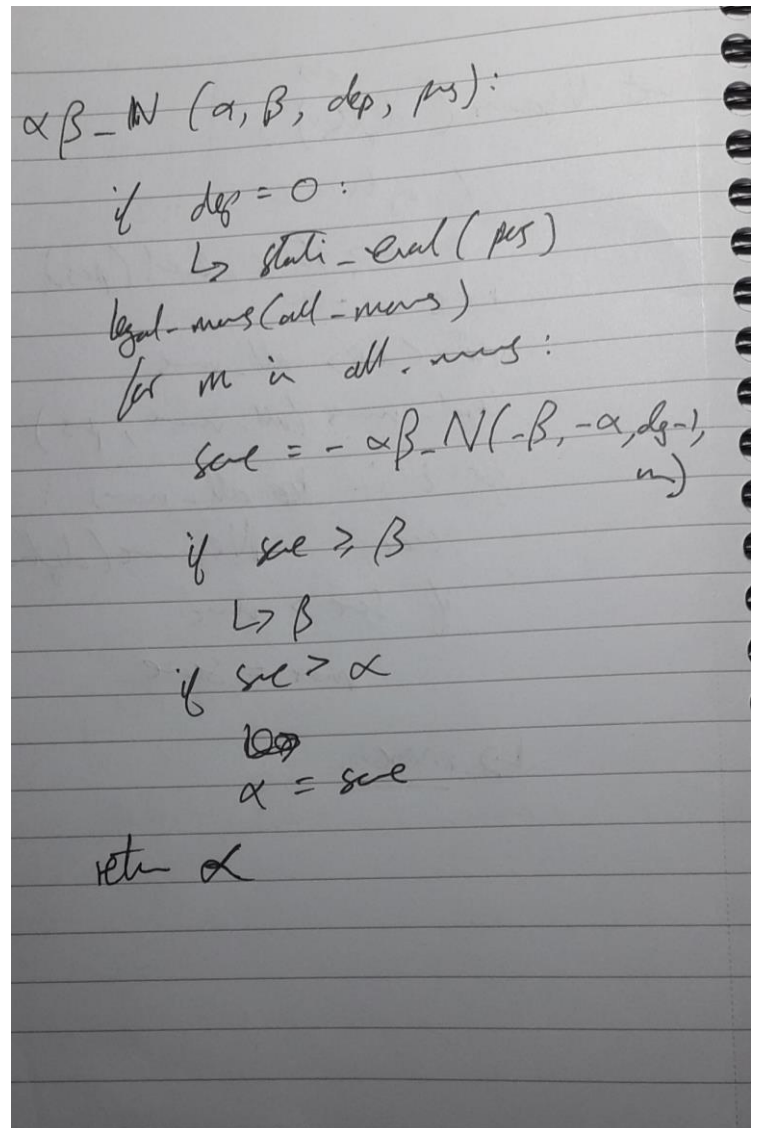 αβ_N (α, β, dep, pos):
if dep = 0:
↳ stati_eval (pos)
legal_moves(all_moves)
for m in all_moves:
score = - αβ_N(-β, -α, dep-1,
m)
if score ≥ β
↳ β
if score > α
α = score
return α